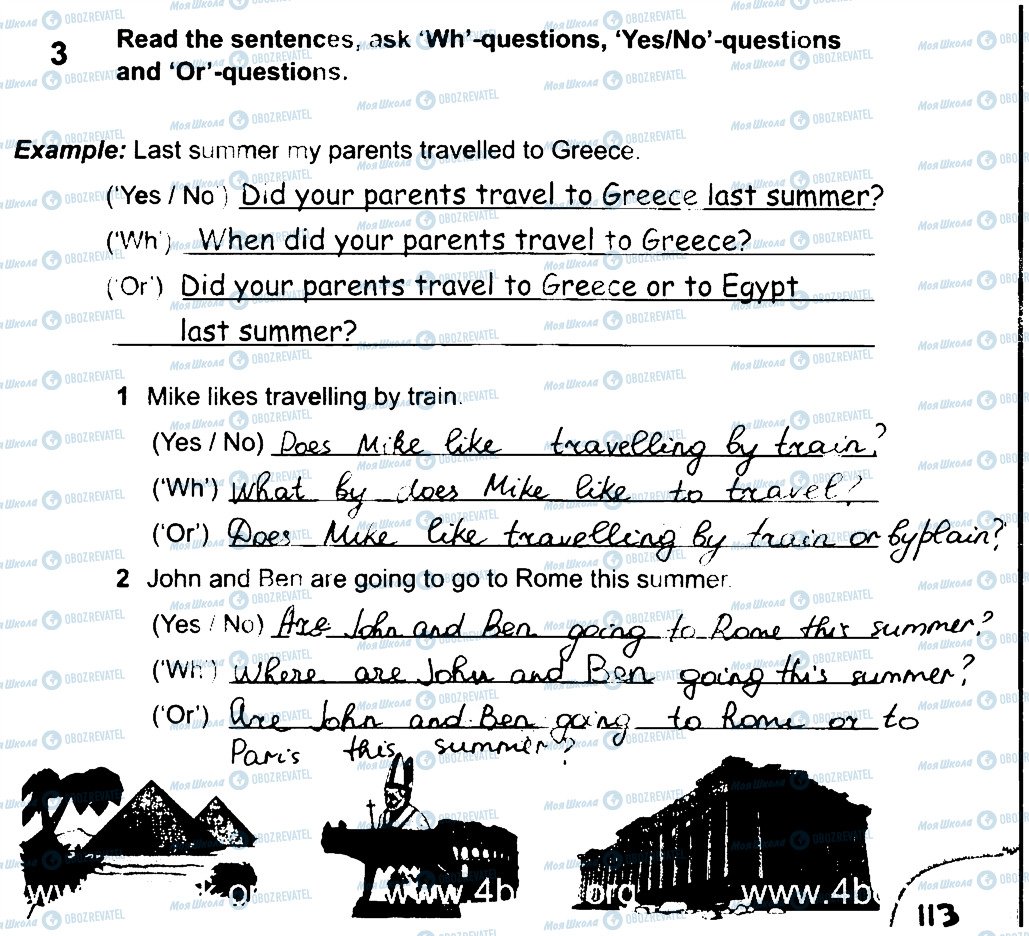 3 Read the sentences, ask ‘Wh’-questions, ‘Yes/No’-questions
and ‘Or’-questions.
Example: Last summer my parents travelled to Greece.
(‘Yes / No’) Did your parents travel to Greece last summer?
(‘Wh’) When did your parents travel to Greece?
(‘Or’) Did your parents travel to Greece or to Egypt
last summer?
1 Mike likes travelling by train.
(Yes / No) Does Mike like travelling by train?
(‘Wh’) What by does Mike like to travel?
(‘Or’) Does Mike like travelling by train or by plain?
2 John and Ben are going to go to Rome this summer.
(Yes / No) Are John and Ben going to Rome this summer?
(‘Wh’) Where are John and Ben going this summer?
(‘Or’) Are John and Ben going to Rome or to
Paris this summer?
113
Моя Школа OBOZREVATEL
www.4b
org